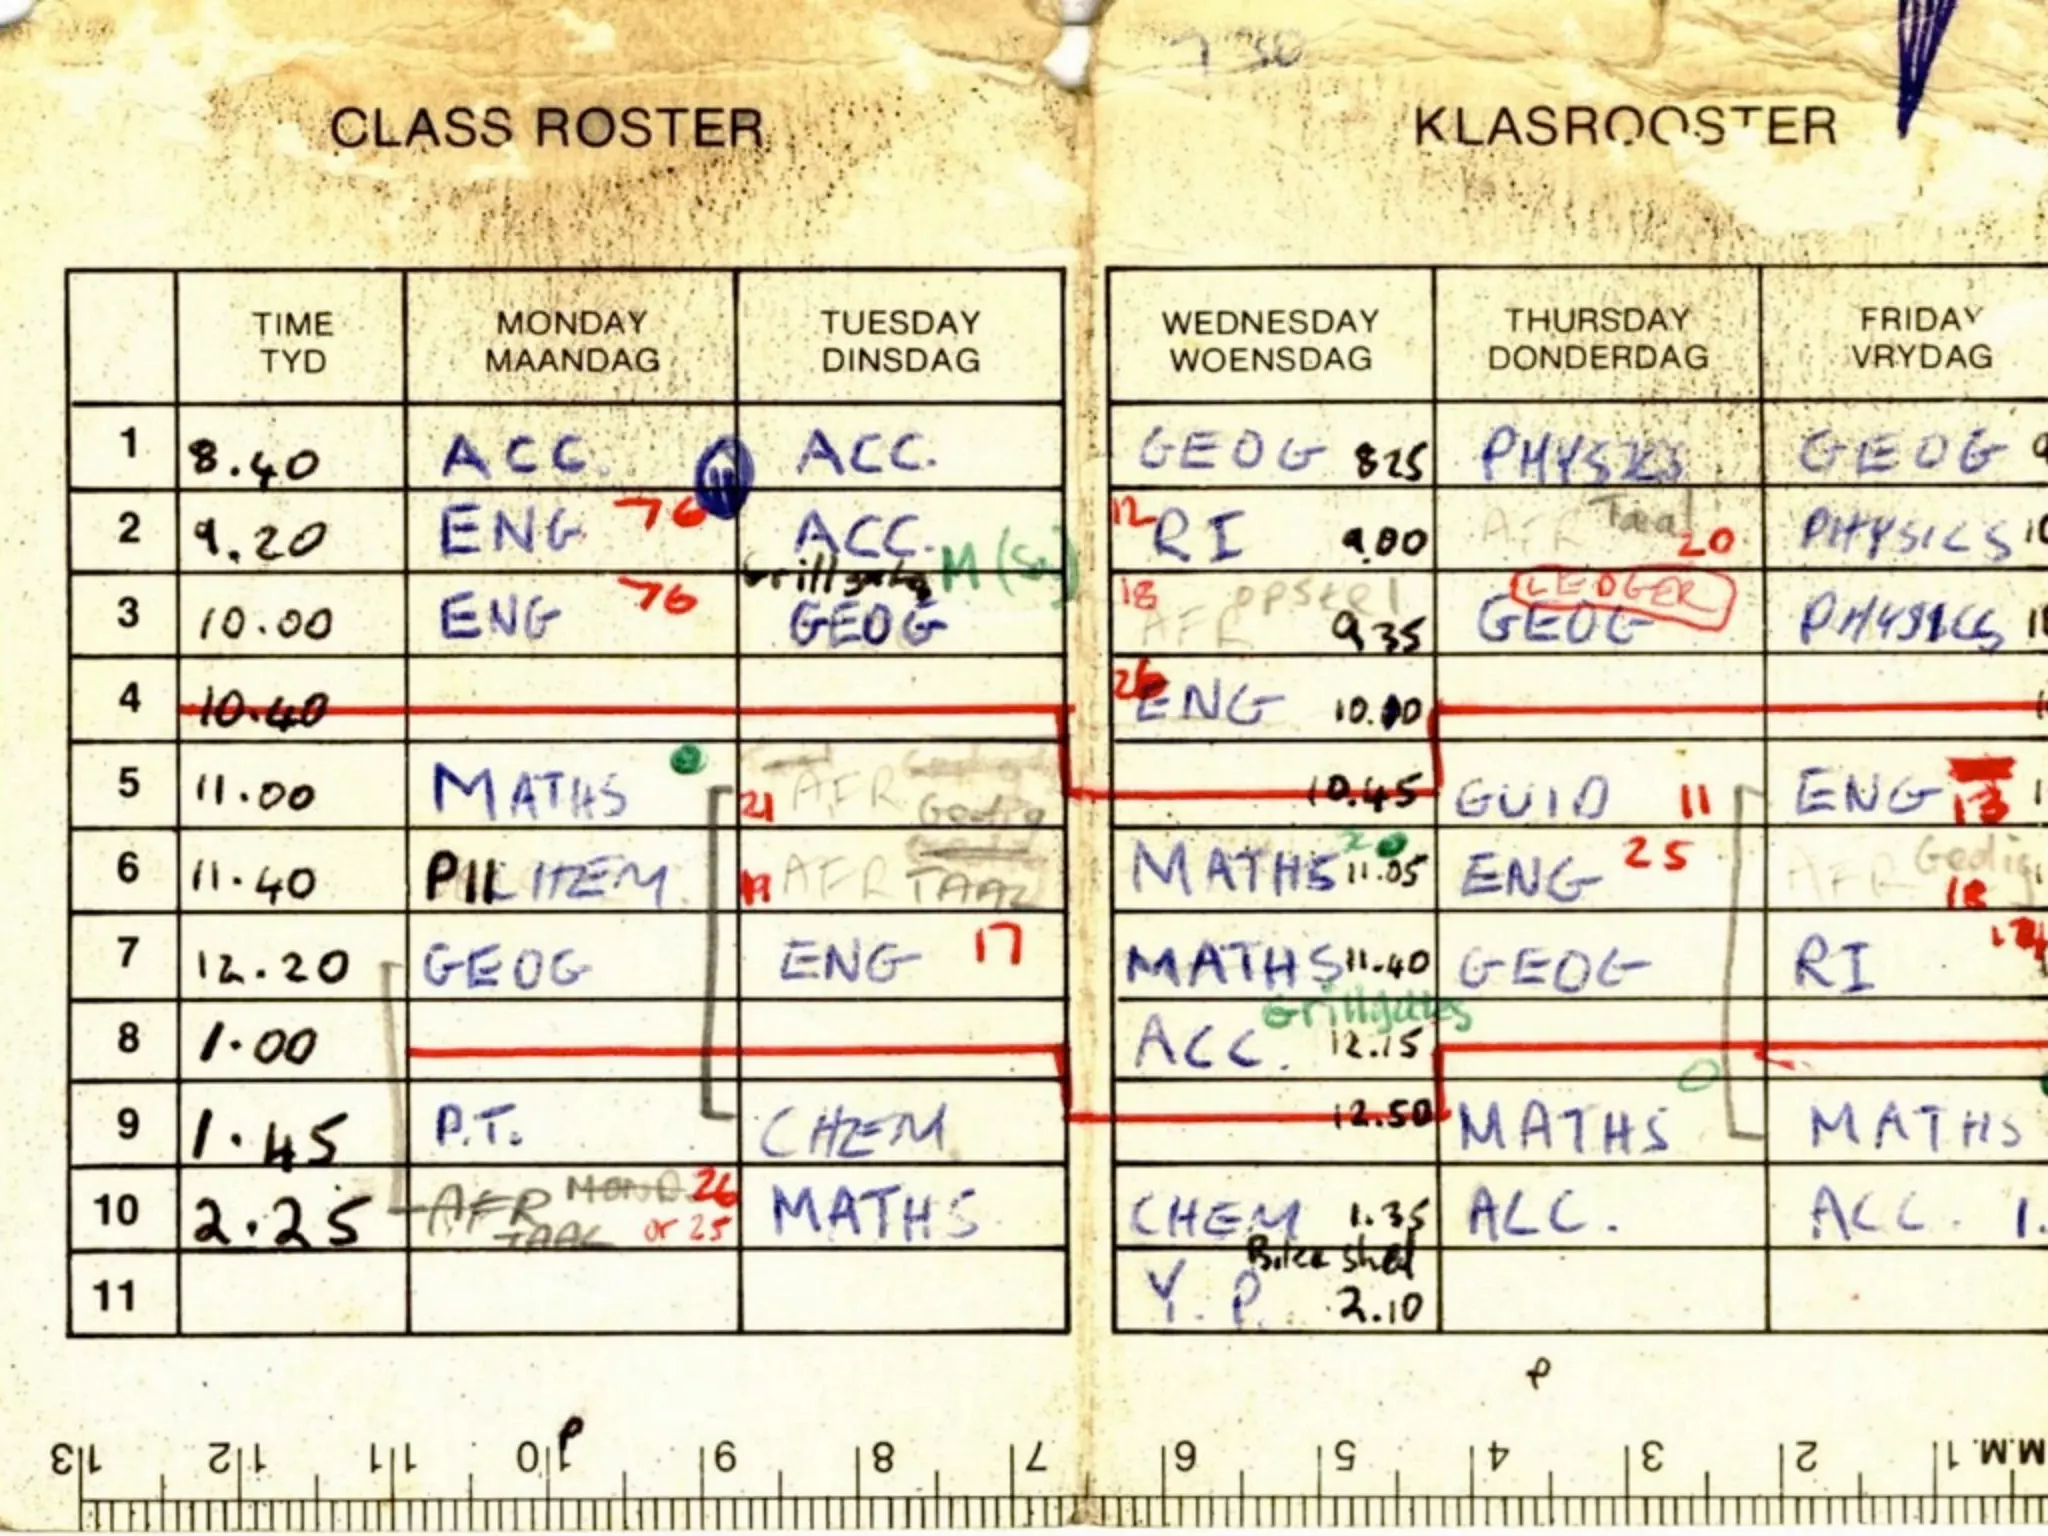 CLASS ROSTER
KLASROOSTER
TIME MONDAY TUESDAY WEDNESDAY THURSDAY FRIDAY
TYD MAANDAG DINSDAG WOENSDAG DONDERDAG VRYDAG
1 8.40 ACC. ACC. GEOG 825 PHYSICS GEOG
2 9.20 ENG 76 ACC. 12 RI 9.00 AFR Taal 20 PHYSICS
M
3 10.00 ENG 76 GEOG 18 AFR opstel 9 35 LEDGER GEOG PHYSICS
4 10.40 26 ENG 10.10
5 11.00 MATHS 21 AFR Gedig 10.45 GUID 11 ENG 13
6 11.40 CHEM 19 AFR TAAL MATHS 20 11.05 ENG 25 AFR Gedig 18
7 12.20 GEOG ENG 17 MATHS 11.40 GEOG RI
8 1.00 ACC. 12.15
9 1.45 P.T. CHEM 12.50 MATHS MATHS
10 2.25 AFR MOND 26 MATHS CHEM 1.35 ACC. ACC. 1.
TAAL or 25
11 Y.P. 2.10
13 12 11 10 9 8 7 6 5 4 3 2 1 M.M.